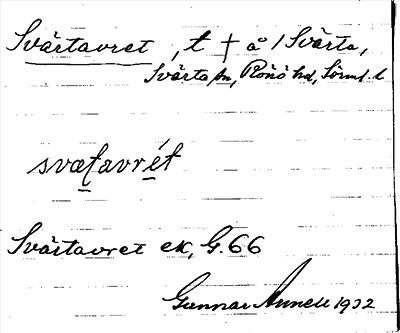 Svärtavret, t † å /Svärta,
Svärta sn, Rönö hd, Sörml. l
svæt̠avrét
Svärtavret ek, G. 66
Gunnar Annell 1932